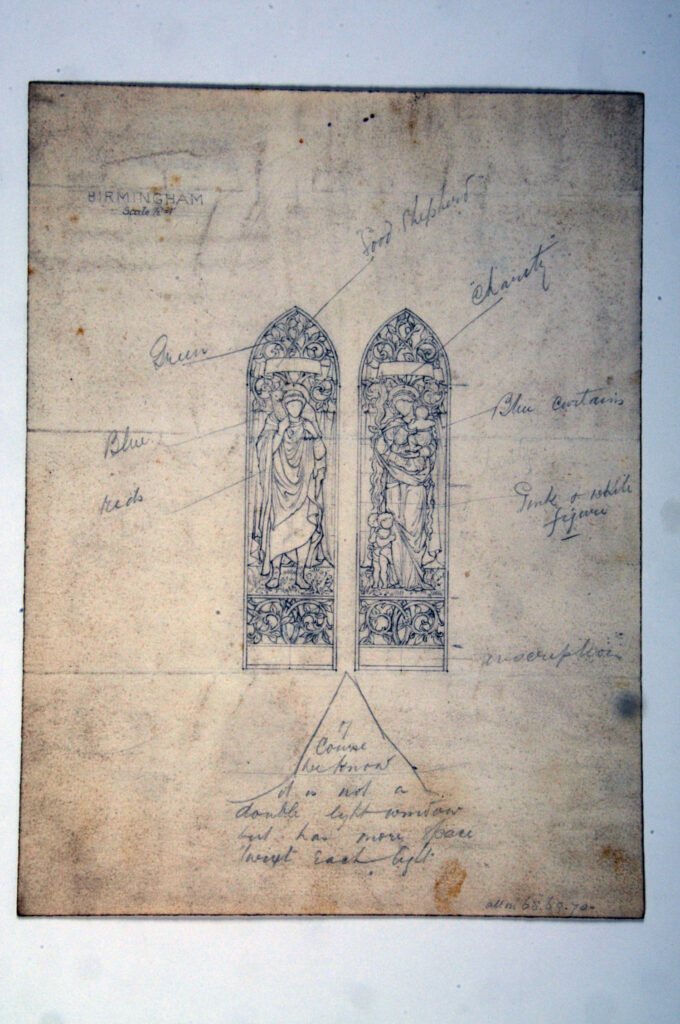 BIRMINGHAM
Good Shepherd
Charity
Green
Blue curtains
Blue
reds
Pink & white
figure
inscription
of
Course
we know
it is not a
double light window
but has more space
twixt each light
68.69.70